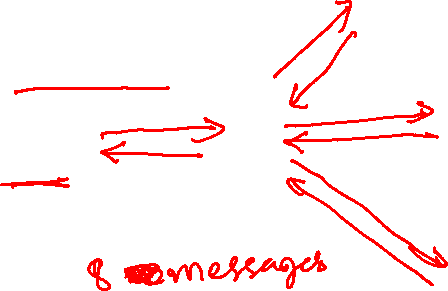 8 messages